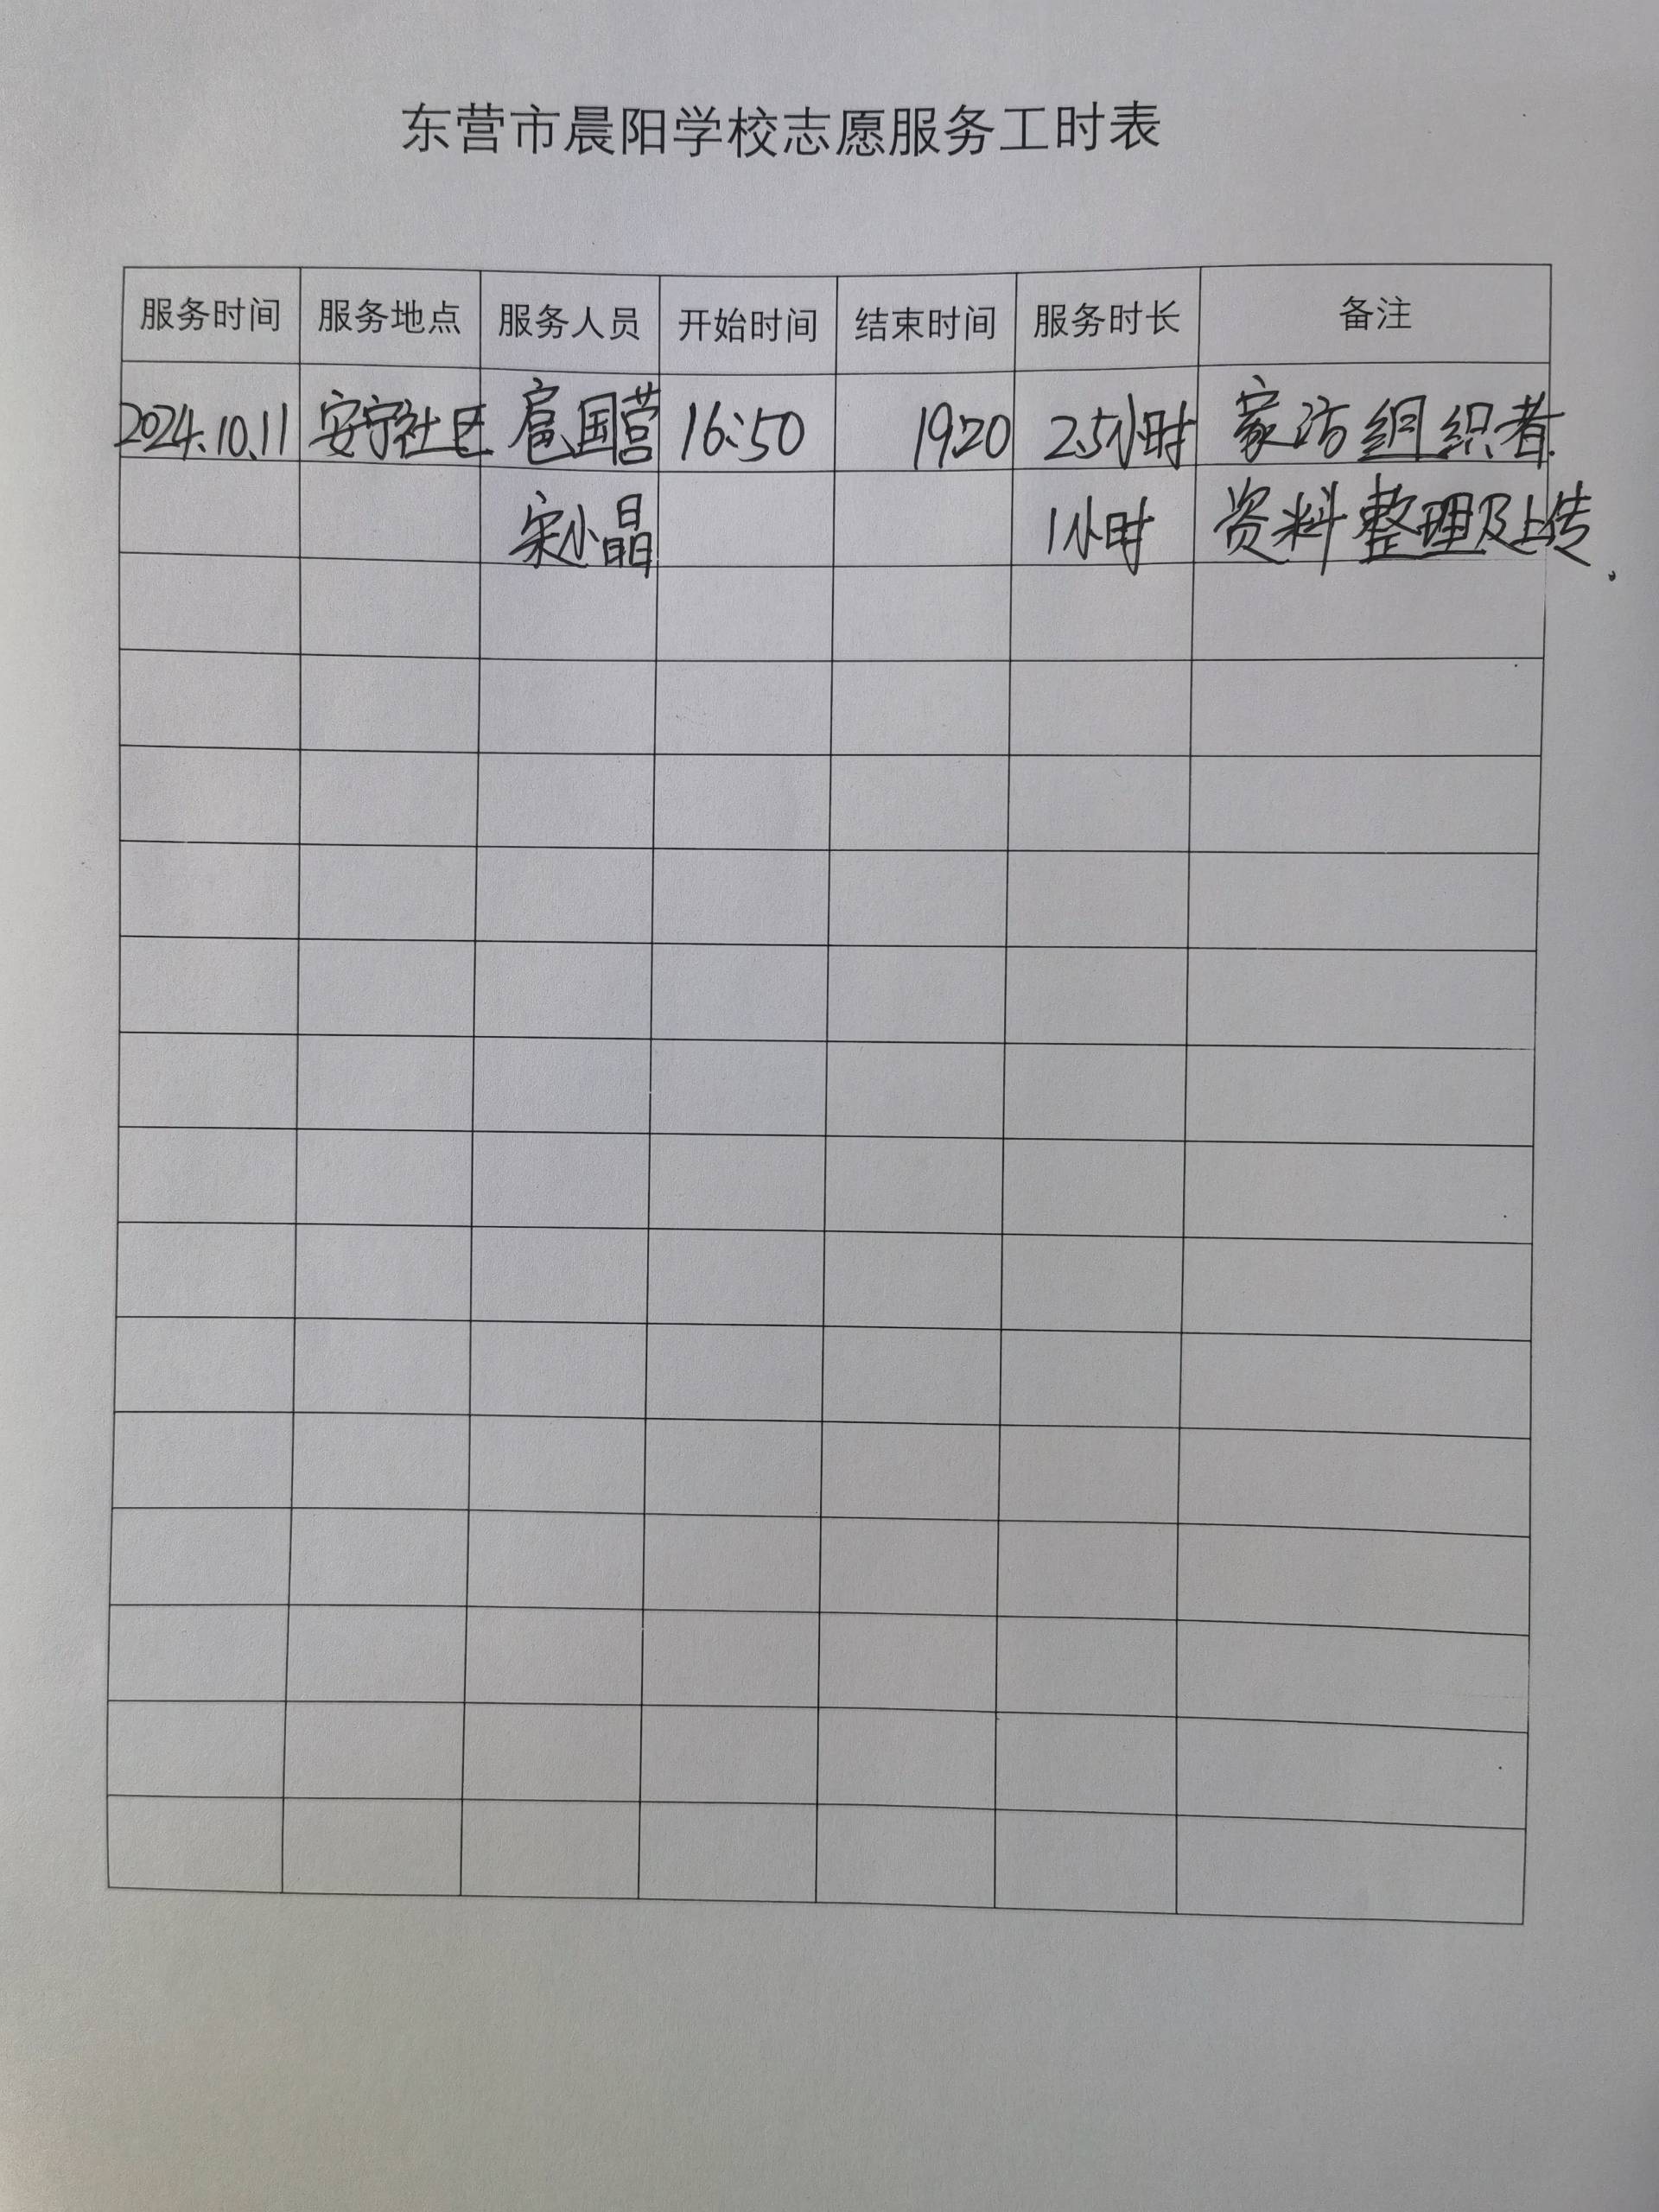 东营市晨阳学校志愿服务工时表
服务时间 服务地点 服务人员 开始时间 结束时间 服务时长 备注
2024.10.11 安宁社区 扈国营 16:50 1920 2.5小时 家访组织者.
宋小晶 1小时 资料整理及上传.